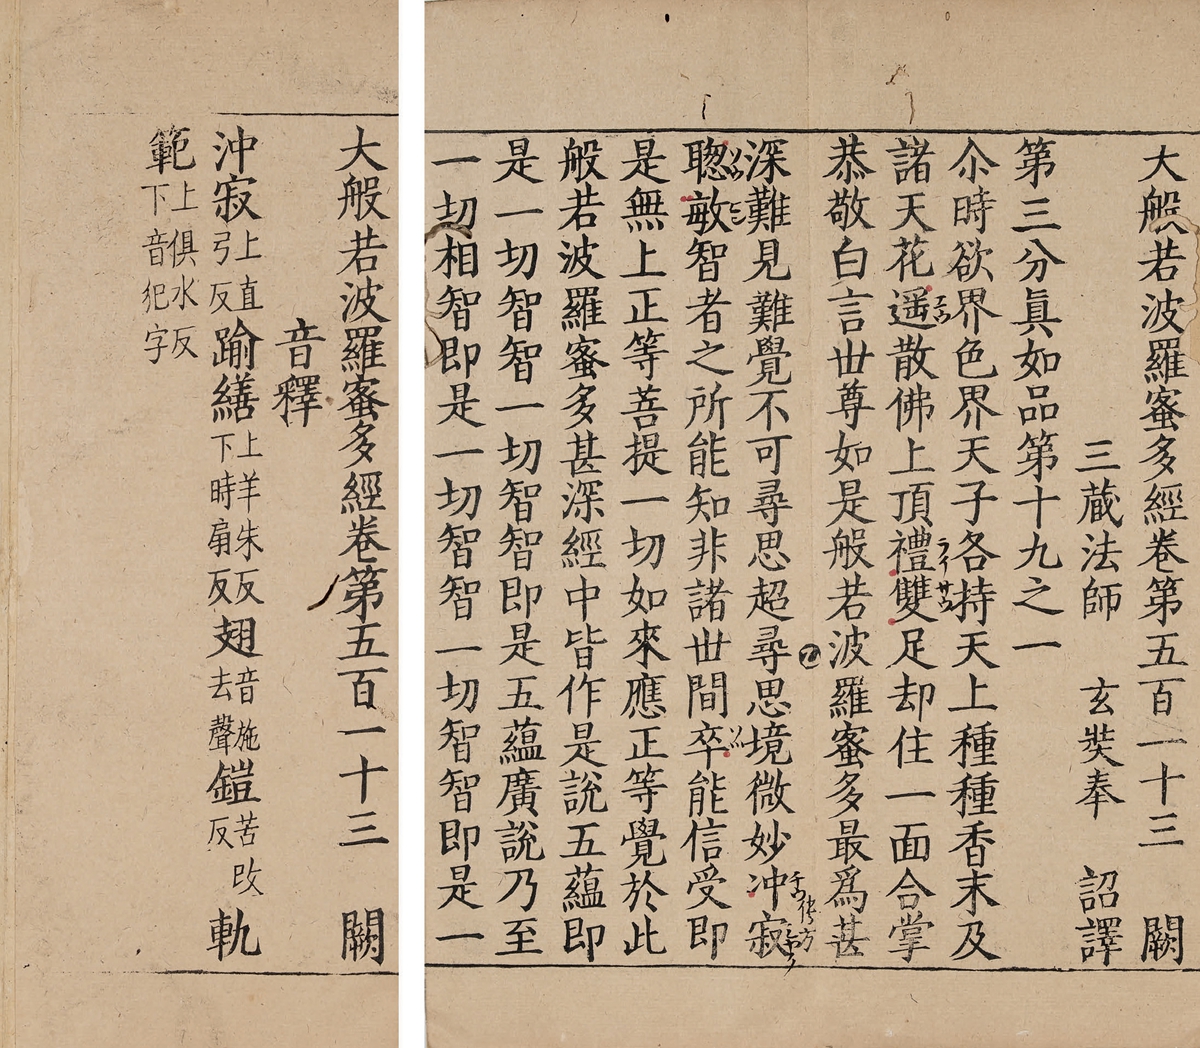 大般若波羅蜜多經卷第五百一十三　闕
三蔵法師　玄奘奉　詔譯
第三分眞如品第十九之一
尒時欲界色界天子各持天上種種香末及
諸天花遥散佛上頂禮雙足却住一面合掌
恭敬白言世尊如是般若波羅蜜多最爲甚
深難見難覺不可尋思超尋思境微妙冲寂
聦敏智者之所能知非諸世間卒能信受即
是無上正等菩提一切如來應正等覺於此
般若波羅蜜多甚深經中皆作是說五蘊即
是一切智智一切智智即是五蘊廣說乃至
一切相智即是一切智智一切智智即是一
大般若波羅蜜多經卷第五百一十三　闕
音釋
沖寂上直弓反踰繕上羊朱反下時扇反翅音施去聲鎧苦改反軌
範上俱水反下音犯字